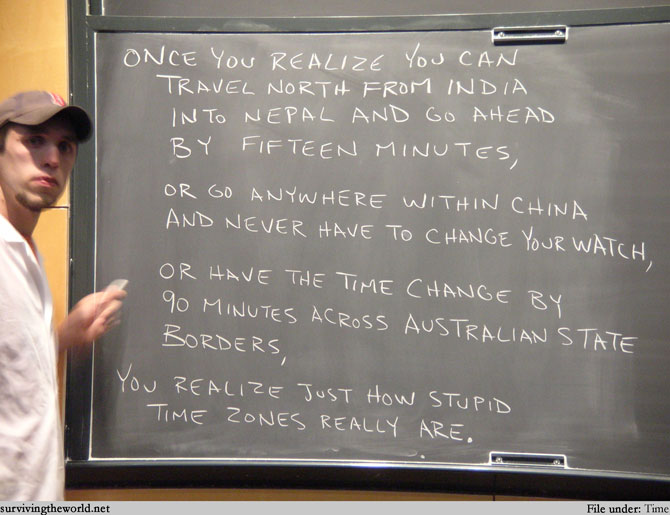 ONCE YOU REALIZE YOU CAN
TRAVEL NORTH FROM INDIA
INTO NEPAL AND GO AHEAD
BY FIFTEEN MINUTES,
OR GO ANYWHERE WITHIN CHINA
AND NEVER HAVE TO CHANGE YOUR WATCH,
OR HAVE THE TIME CHANGE BY
90 MINUTES ACROSS AUSTRALIAN STATE
BORDERS,
YOU REALIZE JUST HOW STUPID
TIME ZONES REALLY ARE.
survivingtheworld.net
File under: Time